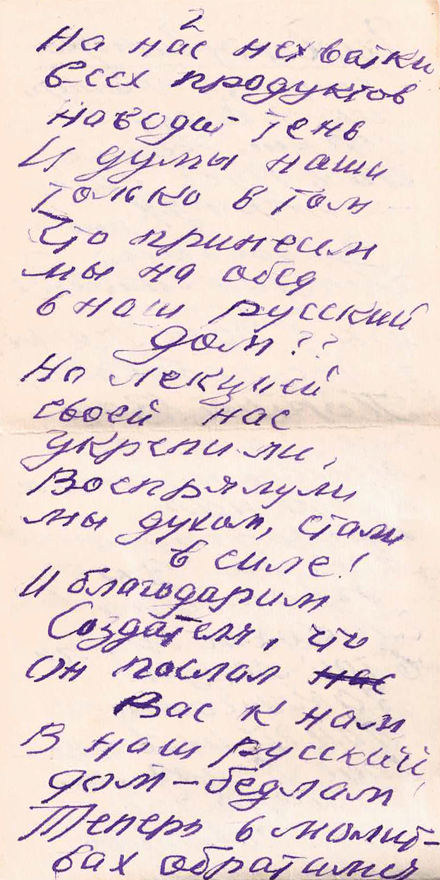 2
На нас нехватки
всех продуктов
наводят тень
И думы наши
только в том
Что принесем
мы на обед
в наш русский
дом??
Но лекцией
своей нас
укрепили,
Воспрянули
мы духом, стали
в силе!
И благодарим
Создателя, что
Он послал нас
Вас к нам
В наш русский,
дом-бедлам
Теперь в молит-
вах обратимся